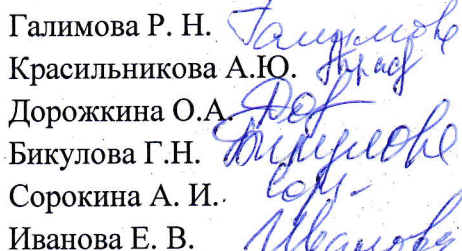 Галимова Р. Н. Галимова
Красильникова А.Ю. Крас
Дорожкина О.А. Дор
Бикулова Г.Н. Бикулова
Сорокина А. И. Сор-
Иванова Е. В. Иванова